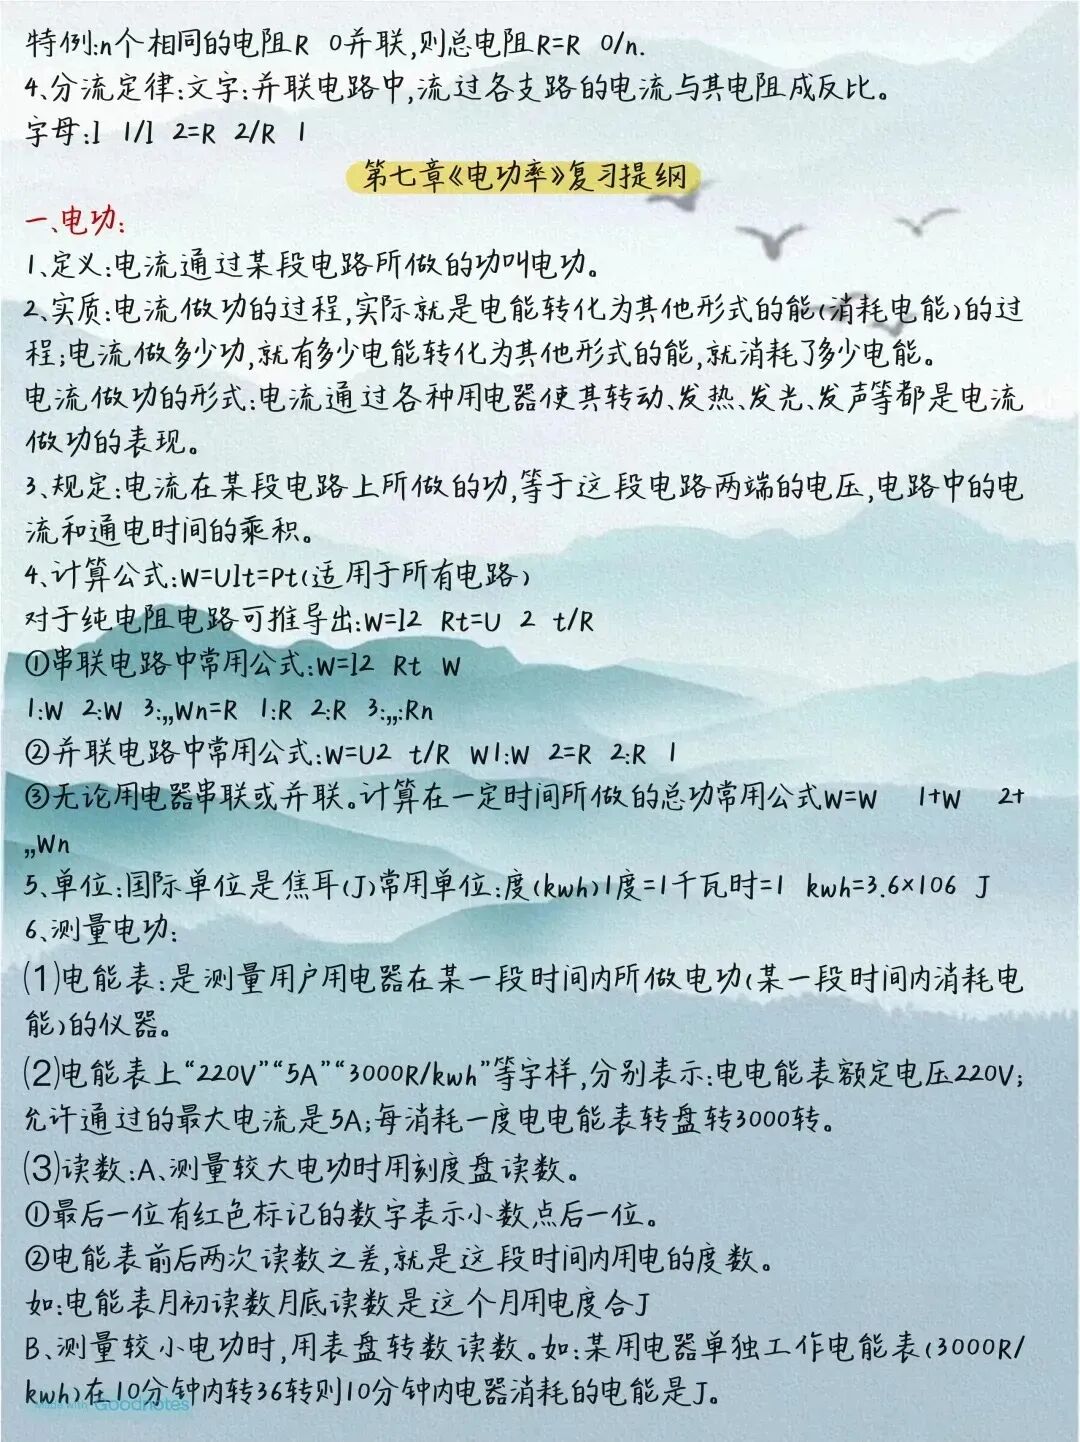 特例:n个相同的电阻R 0并联,则总电阻R=R 0/n.
4、分流定律:文字:并联电路中,流过各支路的电流与其电阻成反比。
字母:I 1/I 2=R 2/R 1
第七章《电功率》复习提纲
一、电功:
1、定义:电流通过某段电路所做的功叫电功。
2、实质:电流做功的过程,实际就是电能转化为其他形式的能(消耗电能)的过
程;电流做多少功,就有多少电能转化为其他形式的能,就消耗了多少电能。
电流做功的形式:电流通过各种用电器使其转动、发热、发光、发声等都是电流
做功的表现。
3、规定:电流在某段电路上所做的功,等于这段电路两端的电压,电路中的电
流和通电时间的乘积。
4、计算公式:W=UIt=Pt(适用于所有电路)
对于纯电阻电路可推导出:W=I2 Rt=U 2 t/R
①串联电路中常用公式:W=I2 Rt W
1:W 2:W 3:„Wn=R 1:R 2:R 3:„:Rn
②并联电路中常用公式:W=U2 t/R W1:W 2=R 2:R 1
③无论用电器串联或并联。计算在一定时间所做的总功常用公式W=W 1+W 2+
„Wn
5、单位:国际单位是焦耳(J)常用单位:度(kwh)1度=1千瓦时=1 kwh=3.6×106 J
6、测量电功:
⑴电能表:是测量用户用电器在某一段时间内所做电功(某一段时间内消耗电
能)的仪器。
⑵电能表上“220V”“5A”“3000R/kwh”等字样,分别表示:电电能表额定电压220V;
允许通过的最大电流是5A;每消耗一度电电能表转盘转3000转。
⑶读数:A、测量较大电功时用刻度盘读数。
①最后一位有红色标记的数字表示小数点后一位。
②电能表前后两次读数之差,就是这段时间内用电的度数。
如:电能表月初读数月底读数是这个月用电度合J
B、测量较小电功时,用表盘转数读数。如:某用电器单独工作电能表(3000R/
kwh)在10分钟内转36转则10分钟内电器消耗的电能是J。
Made with Goodnotes